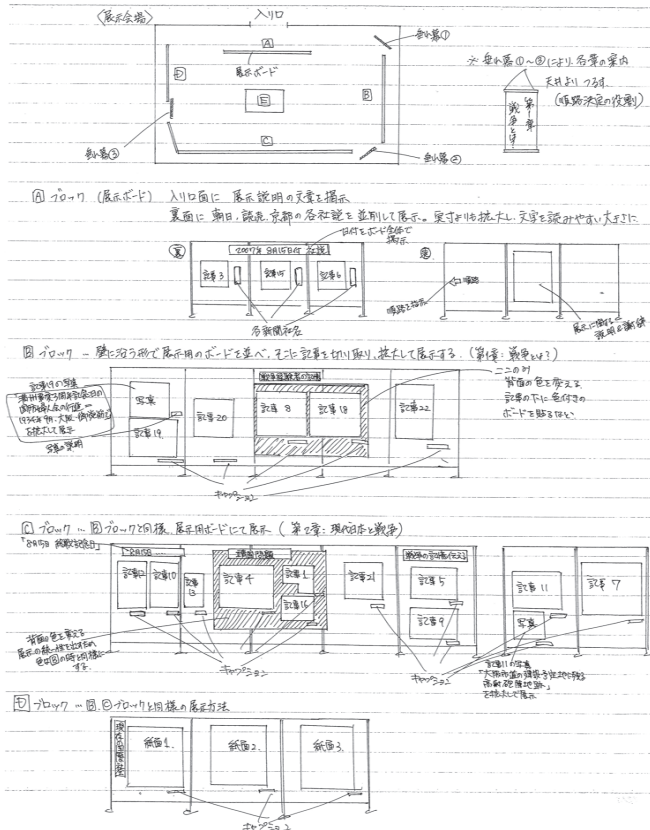 〈展示会場〉
入り口
垂れ幕①
A
展示ボード
D
E
B
C
垂れ幕③
垂れ幕②
※ 垂れ幕①～③により、各章の案内
天井より つるす
(順路決定の役割)
第1章
戦争とは?
A ブロック (展示ボード) 入り口面に 展示説明の文章を掲示
裏面に 朝日、読売、京都の各社説を並列して展示。実寸よりも拡大し、文字を読みやすい大きさに
日付をボード全体で
掲示
裏
2007年 8月15日付 社説
記事3
記事15
記事6
各新聞社名
表
順路
順路を指示
展示に関する
説明と謝辞
B ブロック … 壁に沿う形で展示用のボードを並べ、そこに記事を切り取り、拡大して展示する。(第1章:戦争とは?)
記事19の写真
を拡大して展示
写真の説明
写真
記事19
記事20
戦争経験者の記憶
記事8
記事18
記事22
ここのみ
背面の色を変える
記事の下に色付きの
ボードを貼るなど
キャプション
C ブロック … Bブロックと同様、展示用ボードにて展示 (第2章:現代日本と戦争)
「8月15日 終戦記念日」
8月15日
記事12
記事10
記事13
靖国問題
記事4
記事1
記事16
記事21
戦争の記憶を伝える
記事5
記事9
記事11
写真
記事7
背面の色を変える
展示の統一性を出すため
色はBの時と同様に
する。
キャプション
キャプション
記事11の写真
を拡大して展示
D ブロック … B、Cブロックと同様の展示方法
現在の国際紛争
紙面1.
紙面2.
紙面3.
キャプション